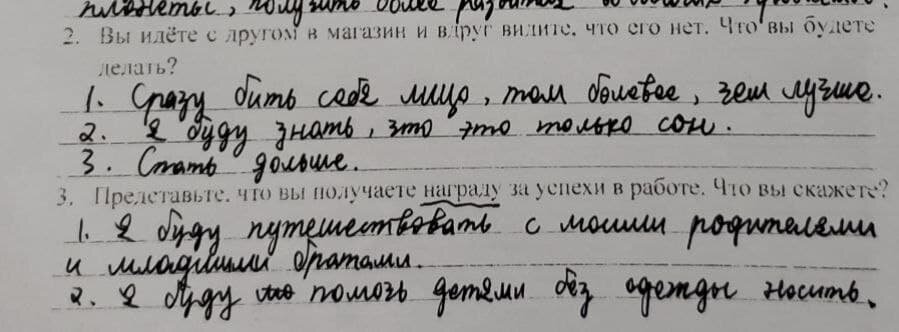 планеты, получить более развитая
2. Вы идёте с другом в магазин и вдруг видите, что его нет. Что вы будете
делать?
1. Сразу бить себя лицо, там болевое, чем лучше.
2. Я буду знать, что это только сон.
3. Спать дольше.
3. Представьте, что вы получаете награду за успехи в работе. Что вы скажете?
1. Я буду путешествовать с моими родителями
и младшими братами.
2. Я буду помочь детями без одежды носить.